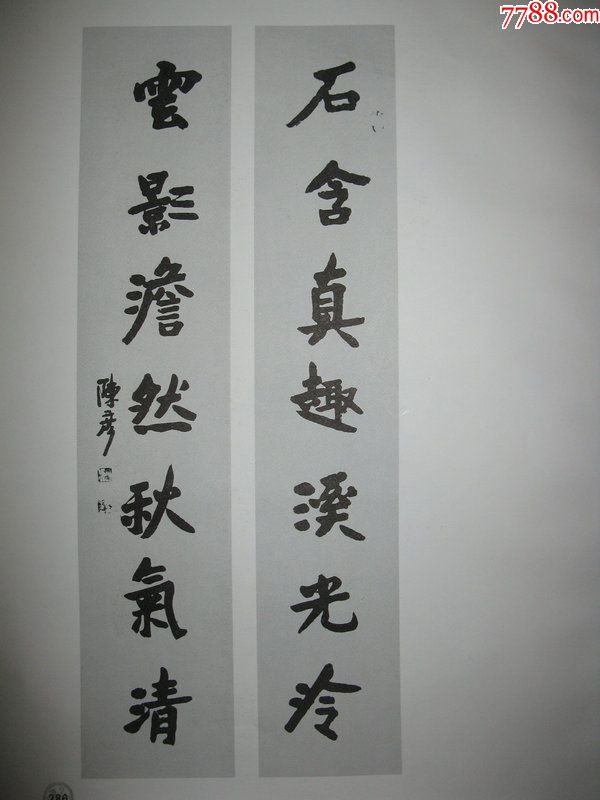 7788.com
石含真趣溪光冷
雲影澹然秋氣清
陳彥
286